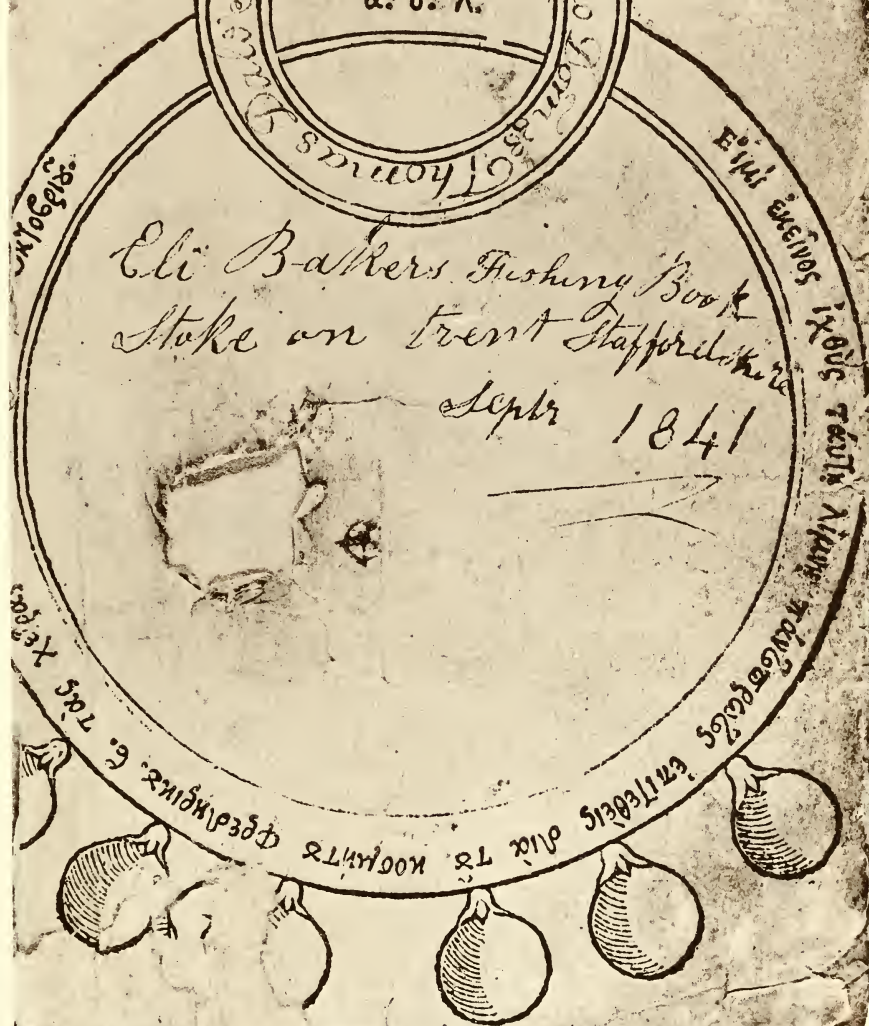 Thomas
Eli Bakers Fishing Book
Stoke on trent Staffordshire
Septr 1841
Εἰμί ἐκεῖνος ἰχθὺς ταύτῃ λίμνῃ παντόπρωτος ἐπιτεθεὶς διὰ τȣ͂ κοσμητȣ͂ τὰς χεῖρας